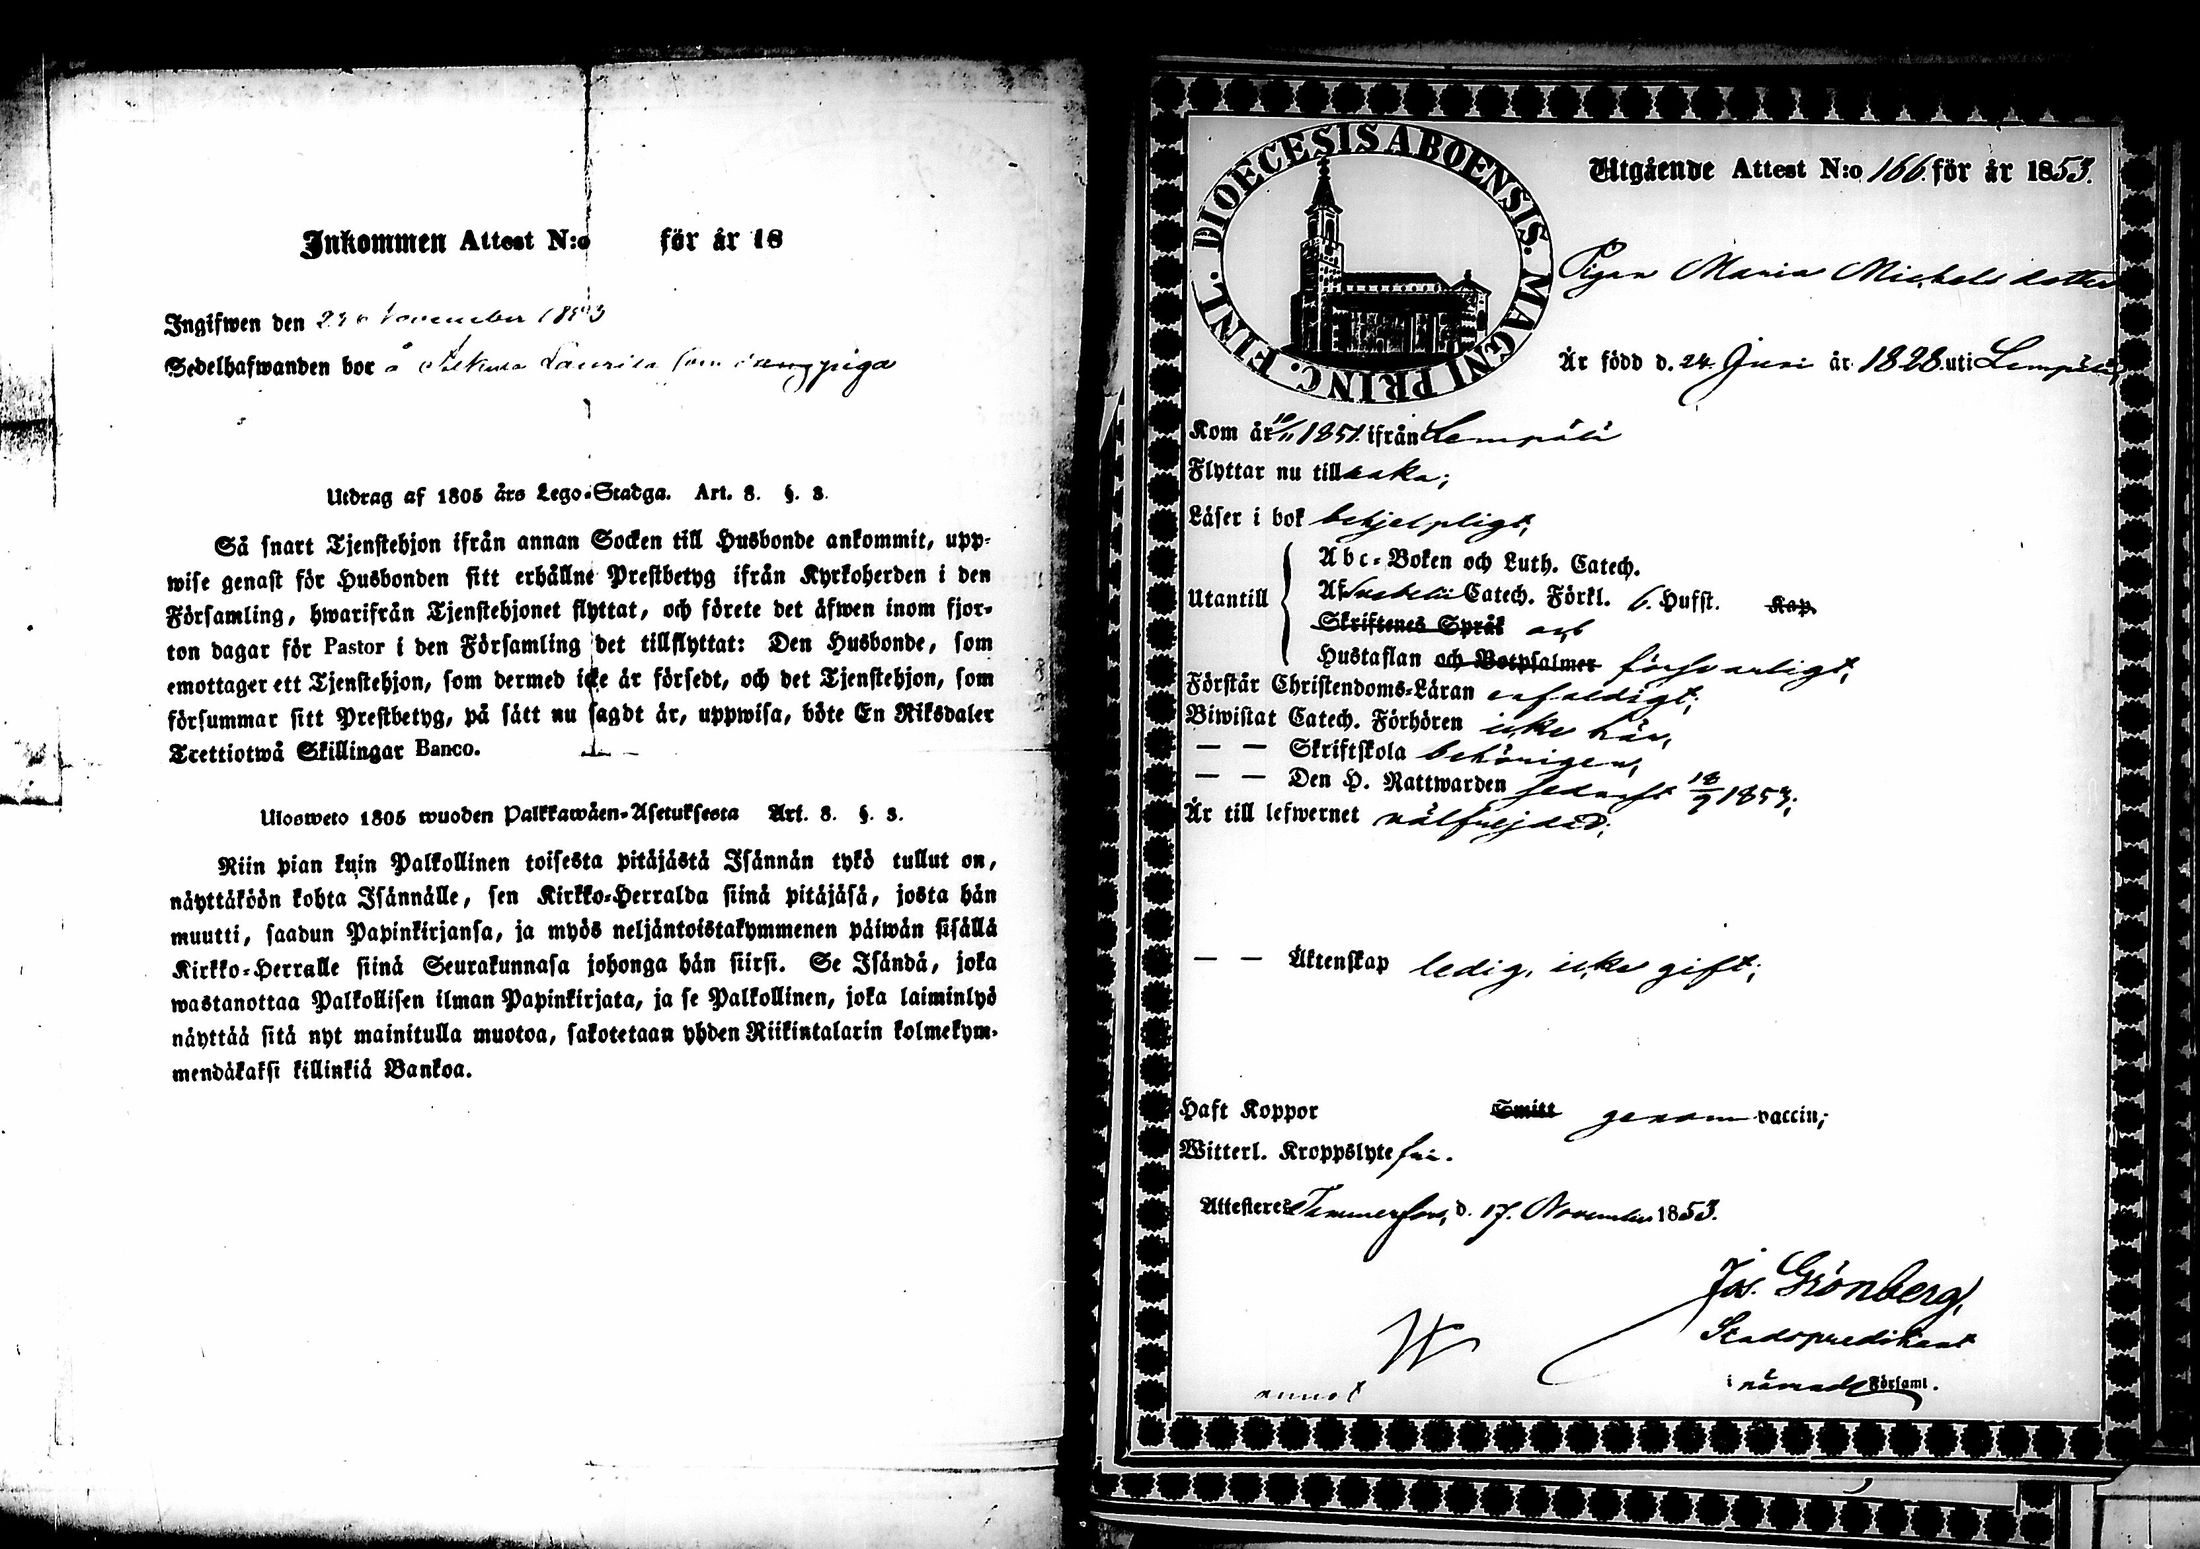 Inkommen Attest N:o för år 18
Ingifwen den November 1853
Sedelhafwanden bor å Laurila som piga
Utdrag af 1805 års Lego-Stadga. Art. 8. §. 3.
Så snart Tjenstehjon ifrån annan Socken till Husbonde ankommit, upp-
wise genast för Husbonden sitt erhållne Prestbetyg ifrån Kyrkoherden i den
Församling, hwarifrån Tjenstehjonet flyttat, och förete det äfwen inom fjor-
ton dagar för Pastor i den Församling det tillflyttat: Den Husbonde, som
emottager ett Tjenstehjon, som dermed icke är försedt, och det Tjenstehjon, som
försummar sitt Prestbetyg, på sått nu sagdt är, uppwisa, böte En Riksdaler
Trettiotwå Skillingar Banco.
Ulosweto 1805 wuoden Palkkawäen-Asetuksesta Art. 8. §. 3.
Niin pian kuin Palkollinen toisesta pitäjästä Isännän tykö tullut on,
näyttäköön kohta Isännälle, sen Kirkko-Herralda siinä pitäjäsä, josta hän
muutti, saadun Papinkirjansa, ja myös neljäntoistakymmenen päiwän sisällä
Kirkko-Herralle siinä Seurakunnasa johonga hän siirsi. Se Isändä, joka
wastanottaa Palkollisen ilman Papinkirjata, ja se Palkollinen, joka laiminlyö
näyttää sitä nyt mainitulla muotoa, sakotetaan yhden Riikintalarin kolmekym-
mendäkaksi killinkiä Bankoa.
DIOECESIS ABOENSIS. MAGNI PRINC. FINL.
Utgående Attest N:o 166 för år 1853.
Pigan Maria Michelsdotter
Är född d. 24 Juni år 1828 uti Lempälä
Kom år 1851 ifrån Lempälä
Flyttar nu tillbaka;
Läser i bok behjelpligt;
Utantill
Abc-Boken och Luth. Catech.
Af Catech. Förkl. 6. Hufst. Kap.
Skriftenes Språk och
Hustaflan och Botpsalmer försvarligt;
Förstår Christendoms-Läran enfaldigt;
Biwistat Catech. Förhören icke här,
— — Skriftskola behörigen,
— — Den H. Nattwarden sednast 18/9 1853;
Är till lefwernet välfrejdad;
— — Äktenskap ledig, icke gift;
Haft Koppor Smitt genom vaccin;
Witterl. Kroppslyte fri.
Attesteres Tammerfors, d. 17. November 1853.
Jos. Grönberg,
Stadspredikant
i nämnde Församl.
annot